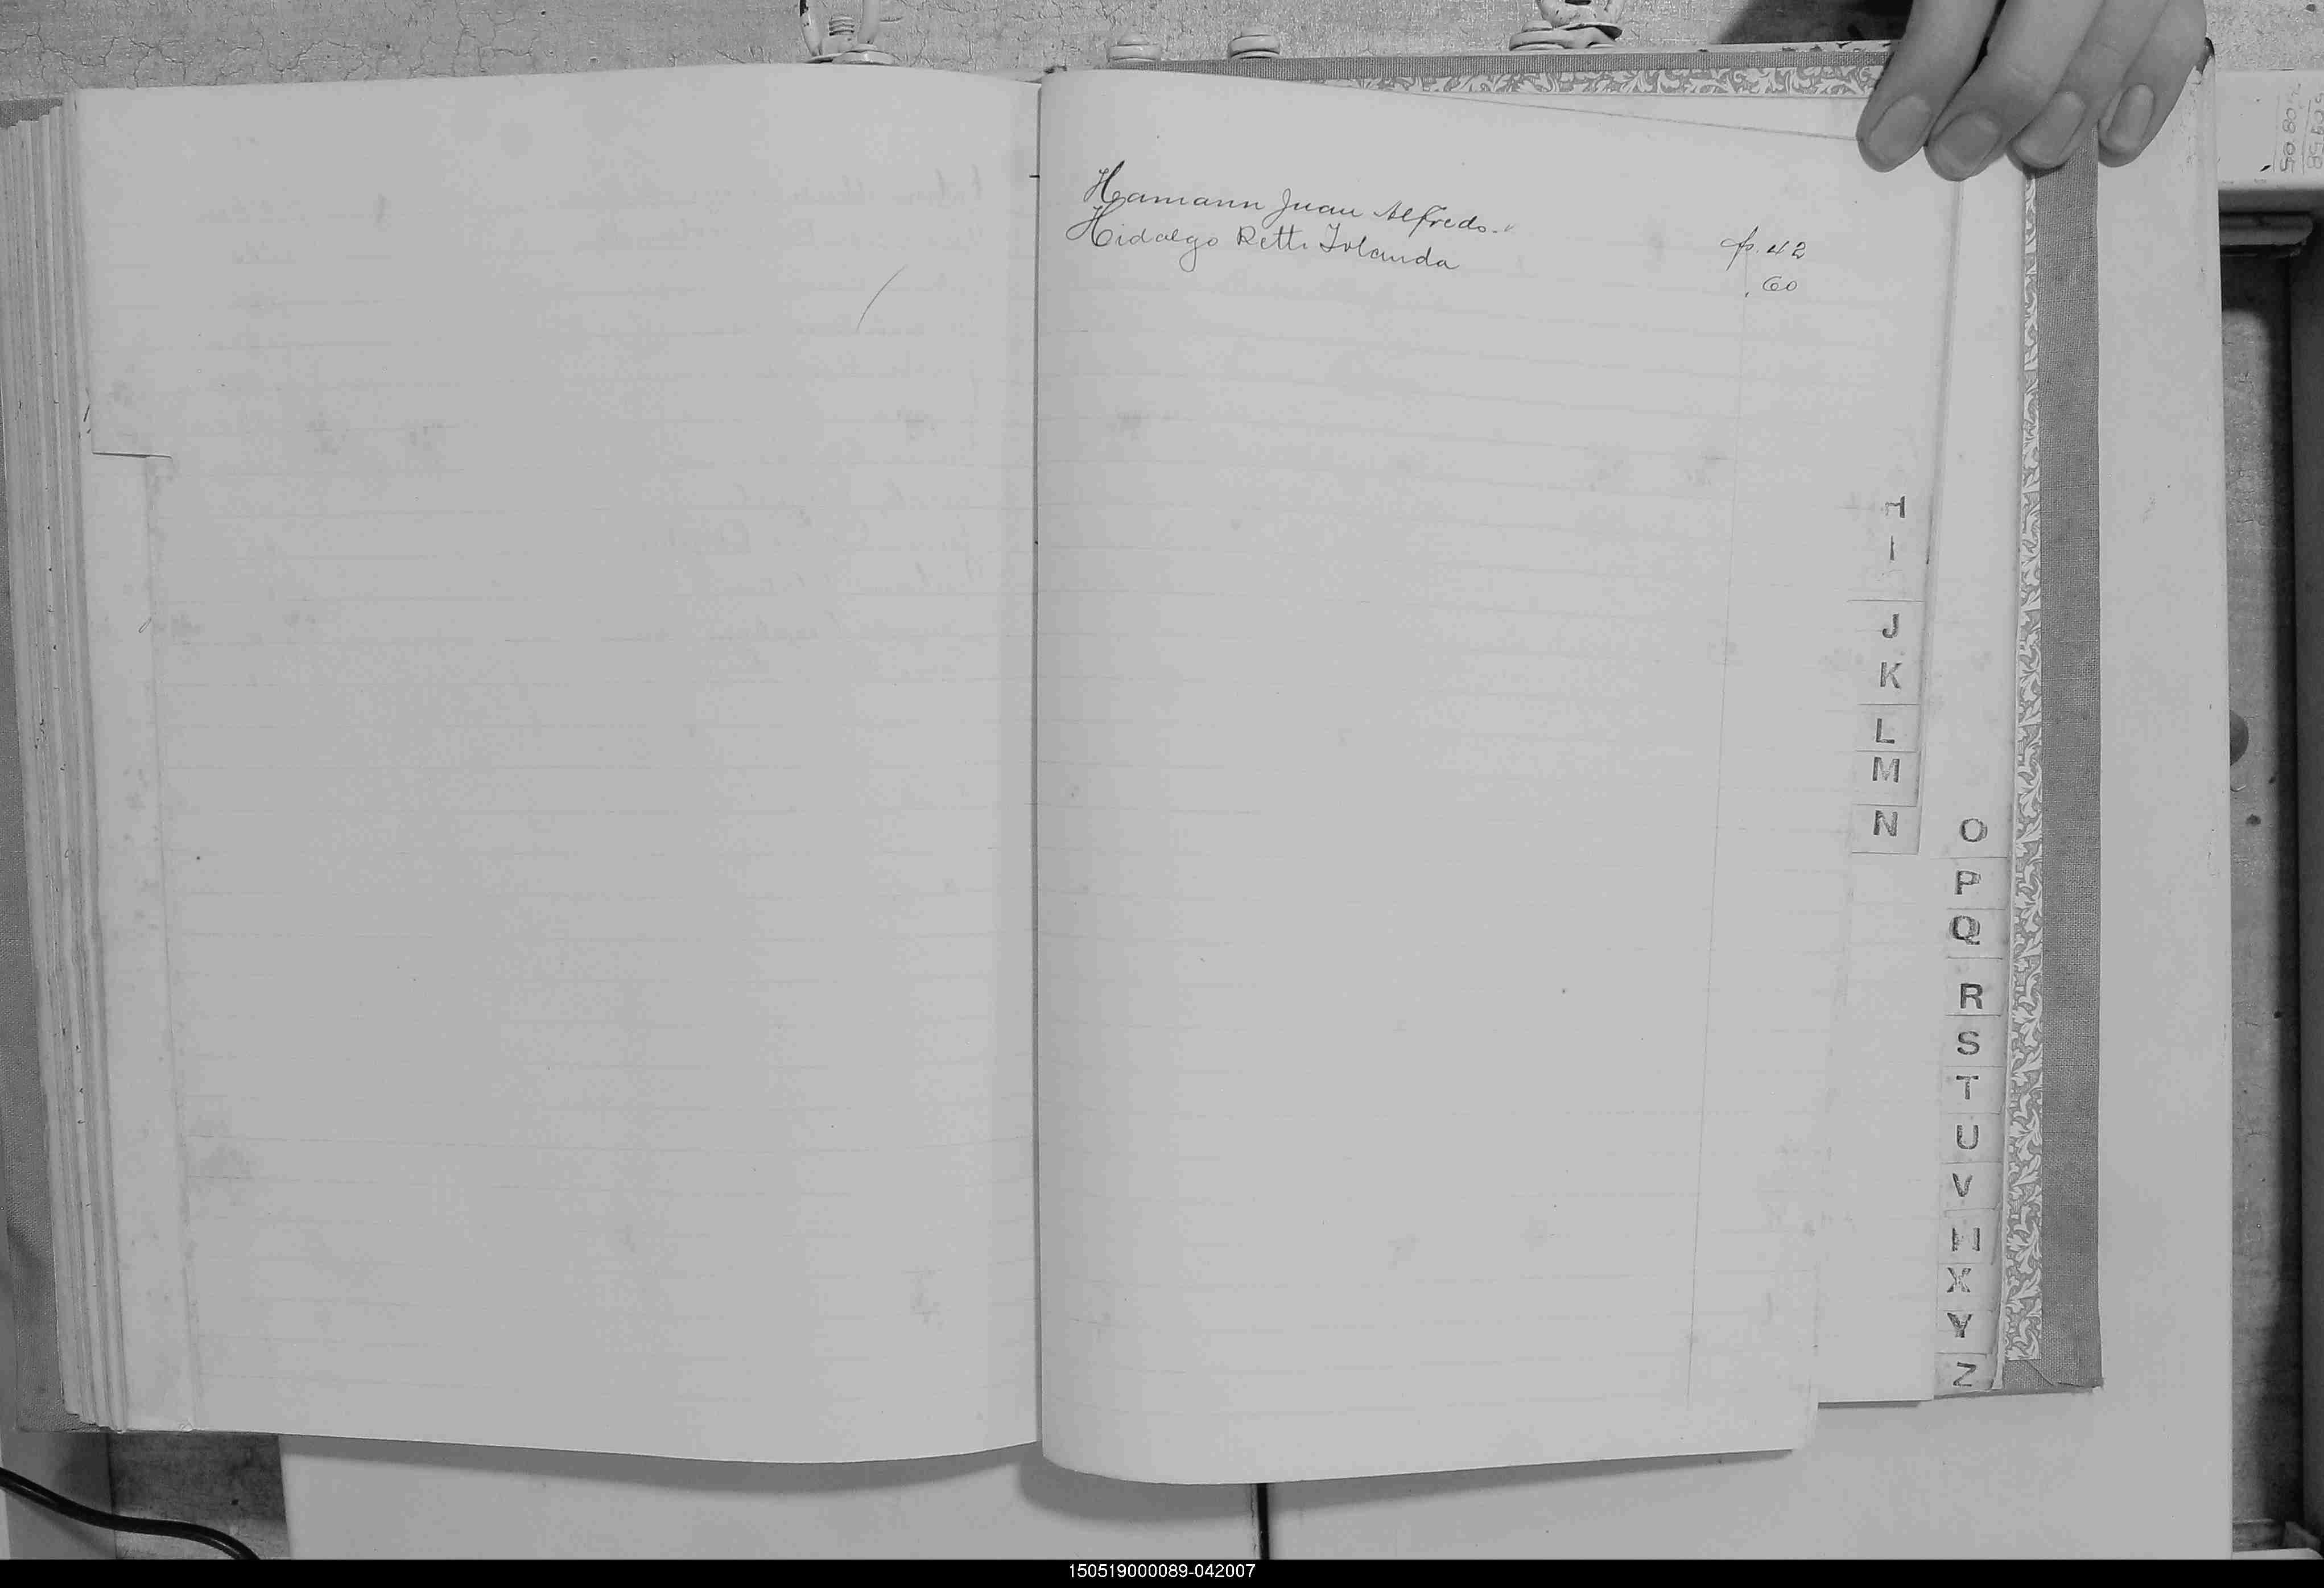 Hamann Juan Alfredo. p. 42
Hidalgo Retti Iolanda 60
H
I
J
K
L
M
N
O
P
Q
R
S
T
U
V
W
X
Y
Z
150519000089-042007